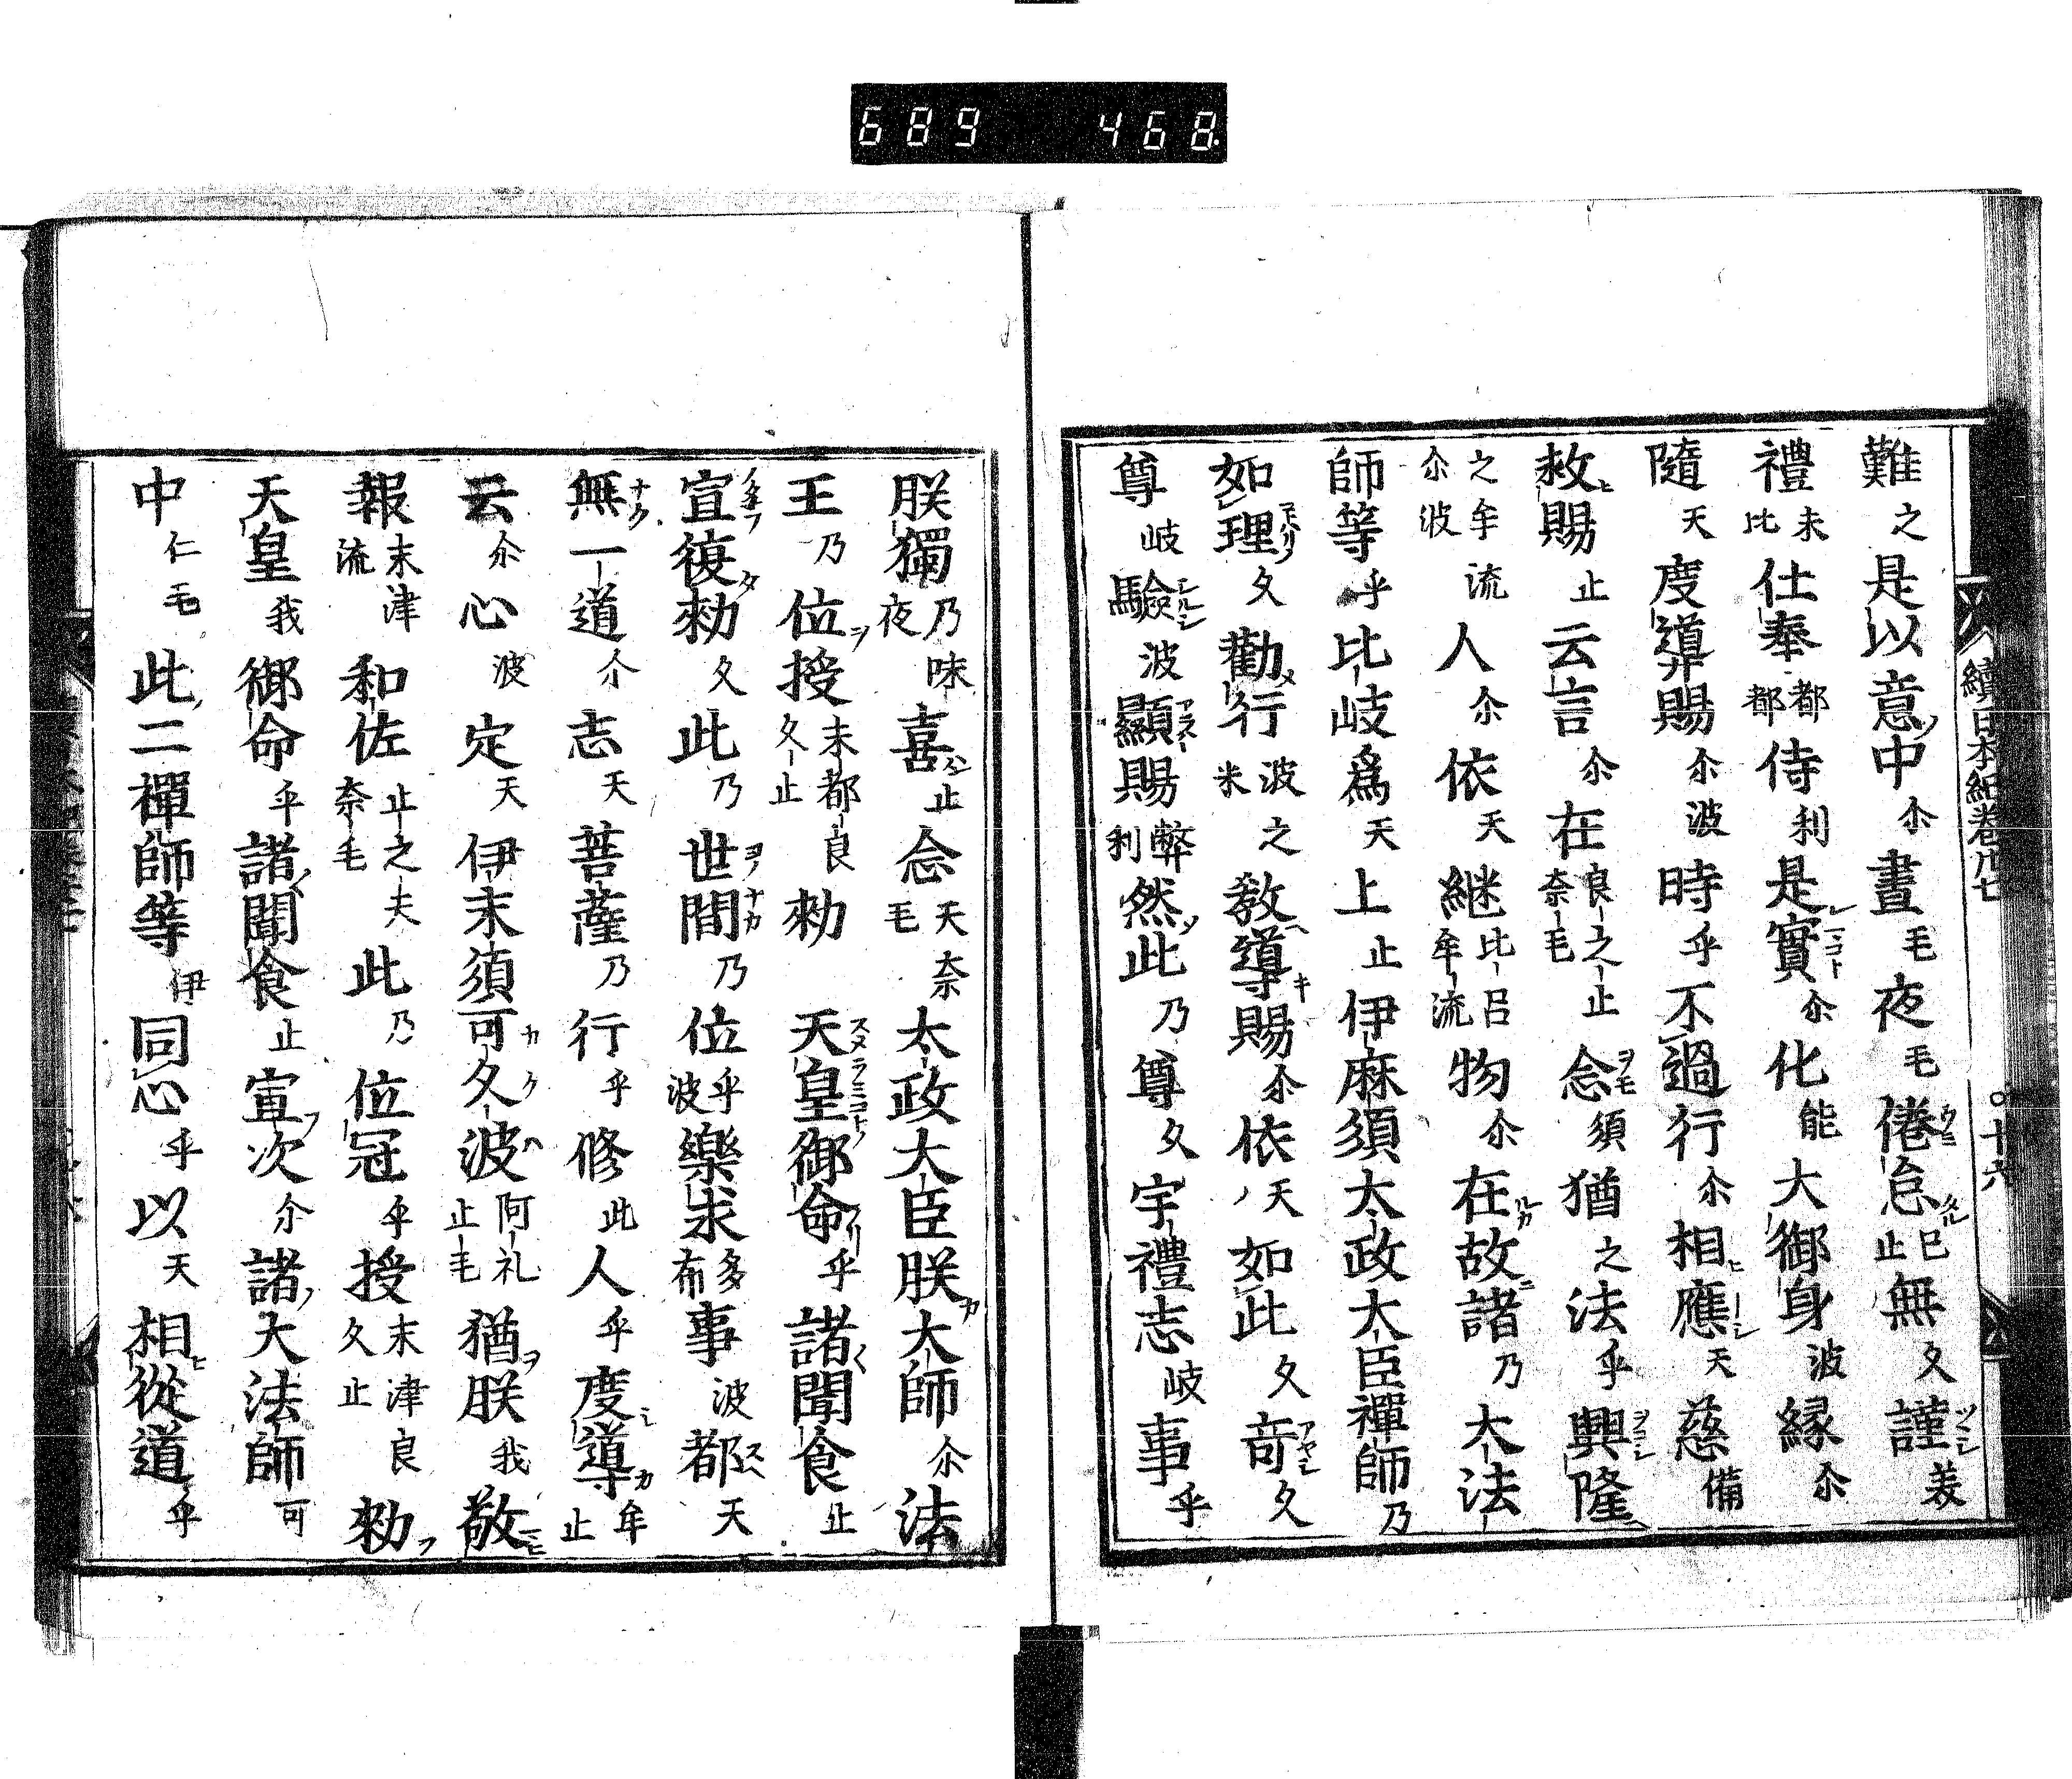 689 468
難之是以意中尒晝毛夜毛倦怠已止無久謹美
禮末比仕奉都都侍利是實尒化能大御身波縁尒
隨天度導賜尒波時乎不過行尒相應天慈備
救賜止云言尒在良之止奈毛念須猶之法乎興隆
之牟流尒波人尒依天継比呂牟流物尒在故諸乃大法
師等乎比岐爲天上止伊麻須太政大臣禪師乃
如理久勸行波之米教導賜尒依天如此久奇久
尊岐驗波顯賜弊利然此乃尊久宇禮志岐事乎
續日本紀卷廿七 〇十六
朕獨乃夜味喜止念天毛奈太政大臣朕大師尒法
王乃位授末都良久止勅天皇御命乎諸聞食止
宣復勅久此乃世間乃位乎波樂求多布事波都天
無一道尒志天菩薩乃行乎修此人乎度導牟止
云尒心波定天伊末須可久波阿礼止毛猶朕我敬
報末津流和佐止之夫奈毛此乃位冠乎授末津良久止勅
天皇我御命乎諸聞食止宣次尒諸大法師可
中仁毛此二禪師等伊同心乎以天相從道乎